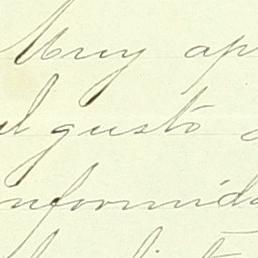 Muy ap
el gusto
nformida